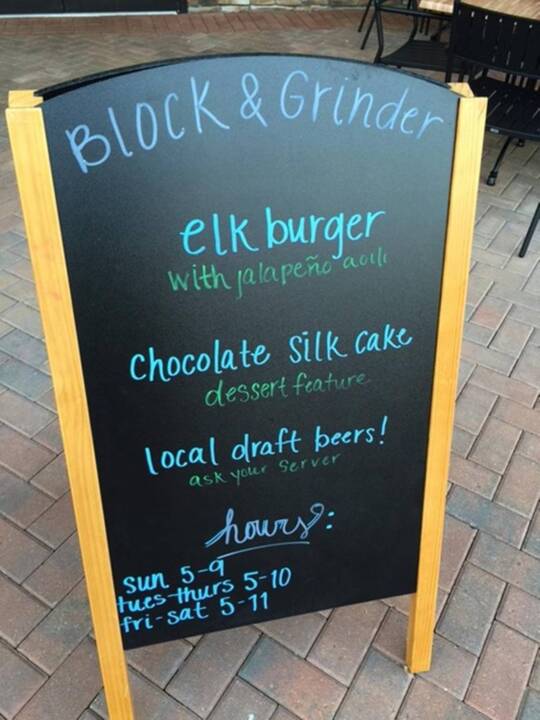 BLOCK & Grinder
elk burger
with jalapeño aoili
chocolate silk cake
dessert feature
local draft beers!
ask your server
hours:
sun 5-9
tues-thurs 5-10
fri-sat 5-11